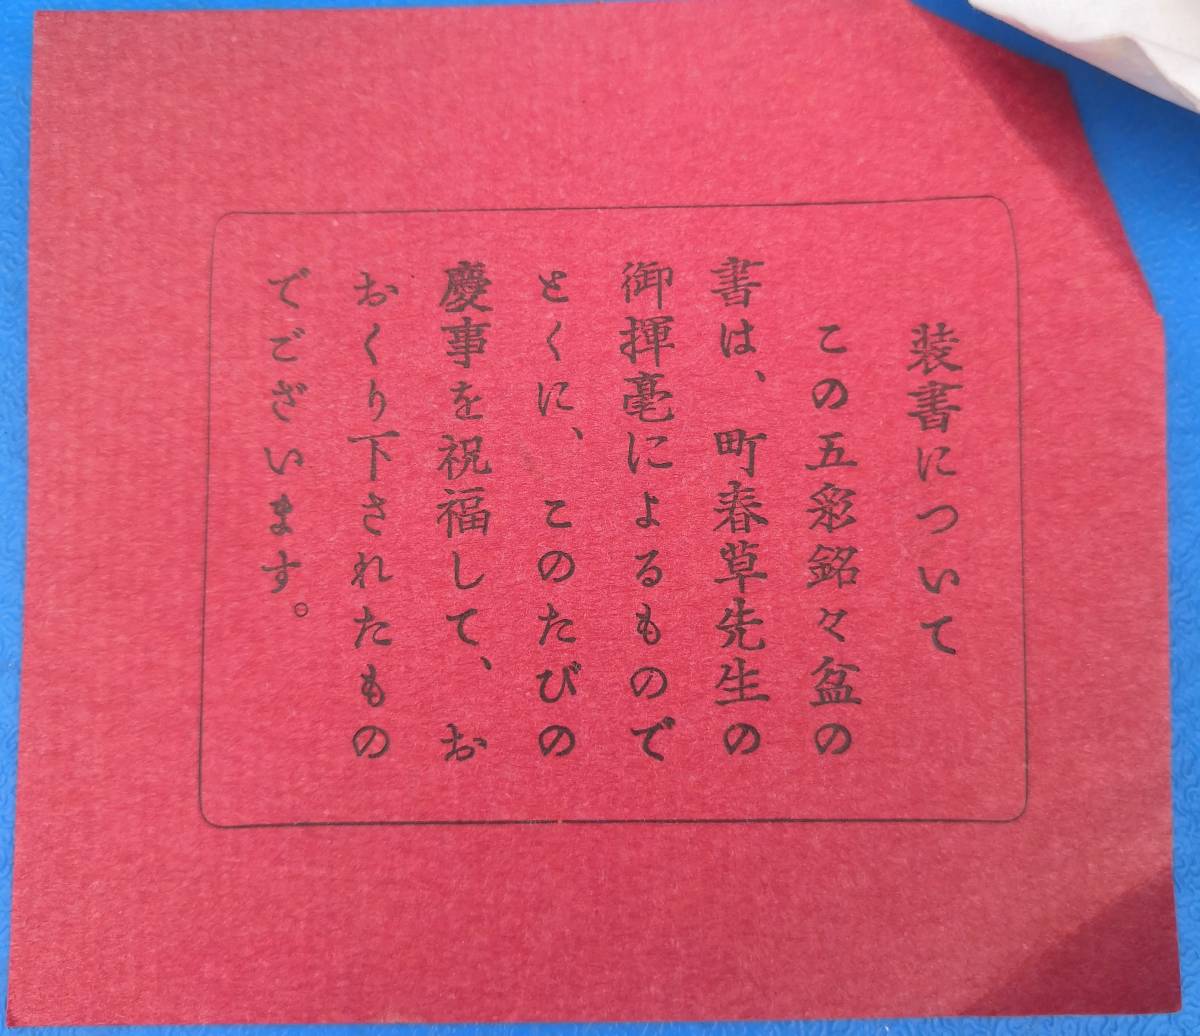 装書について
この五彩銘々盆の
書は、町春草先生の
御揮毫によるもので
とくに、このたびの
慶事を祝福して、お
おくり下されたもの
でございます。